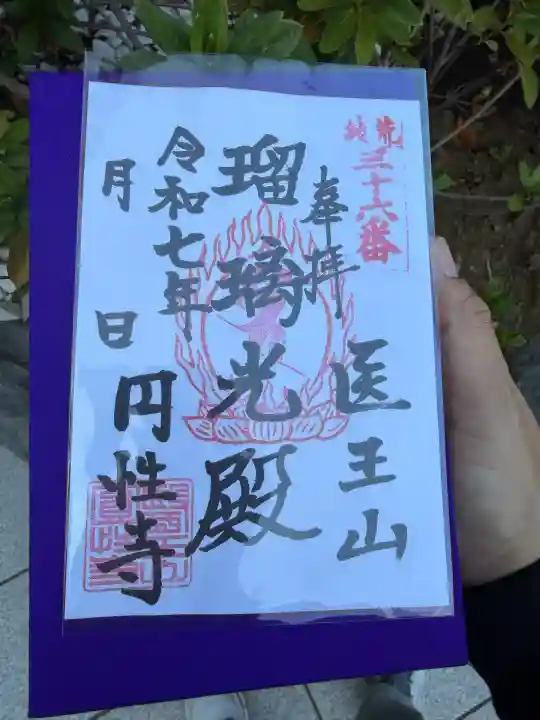 荒綾三十六番
奉拝
医王山
瑠璃光殿
令和七年
月 日
円性寺